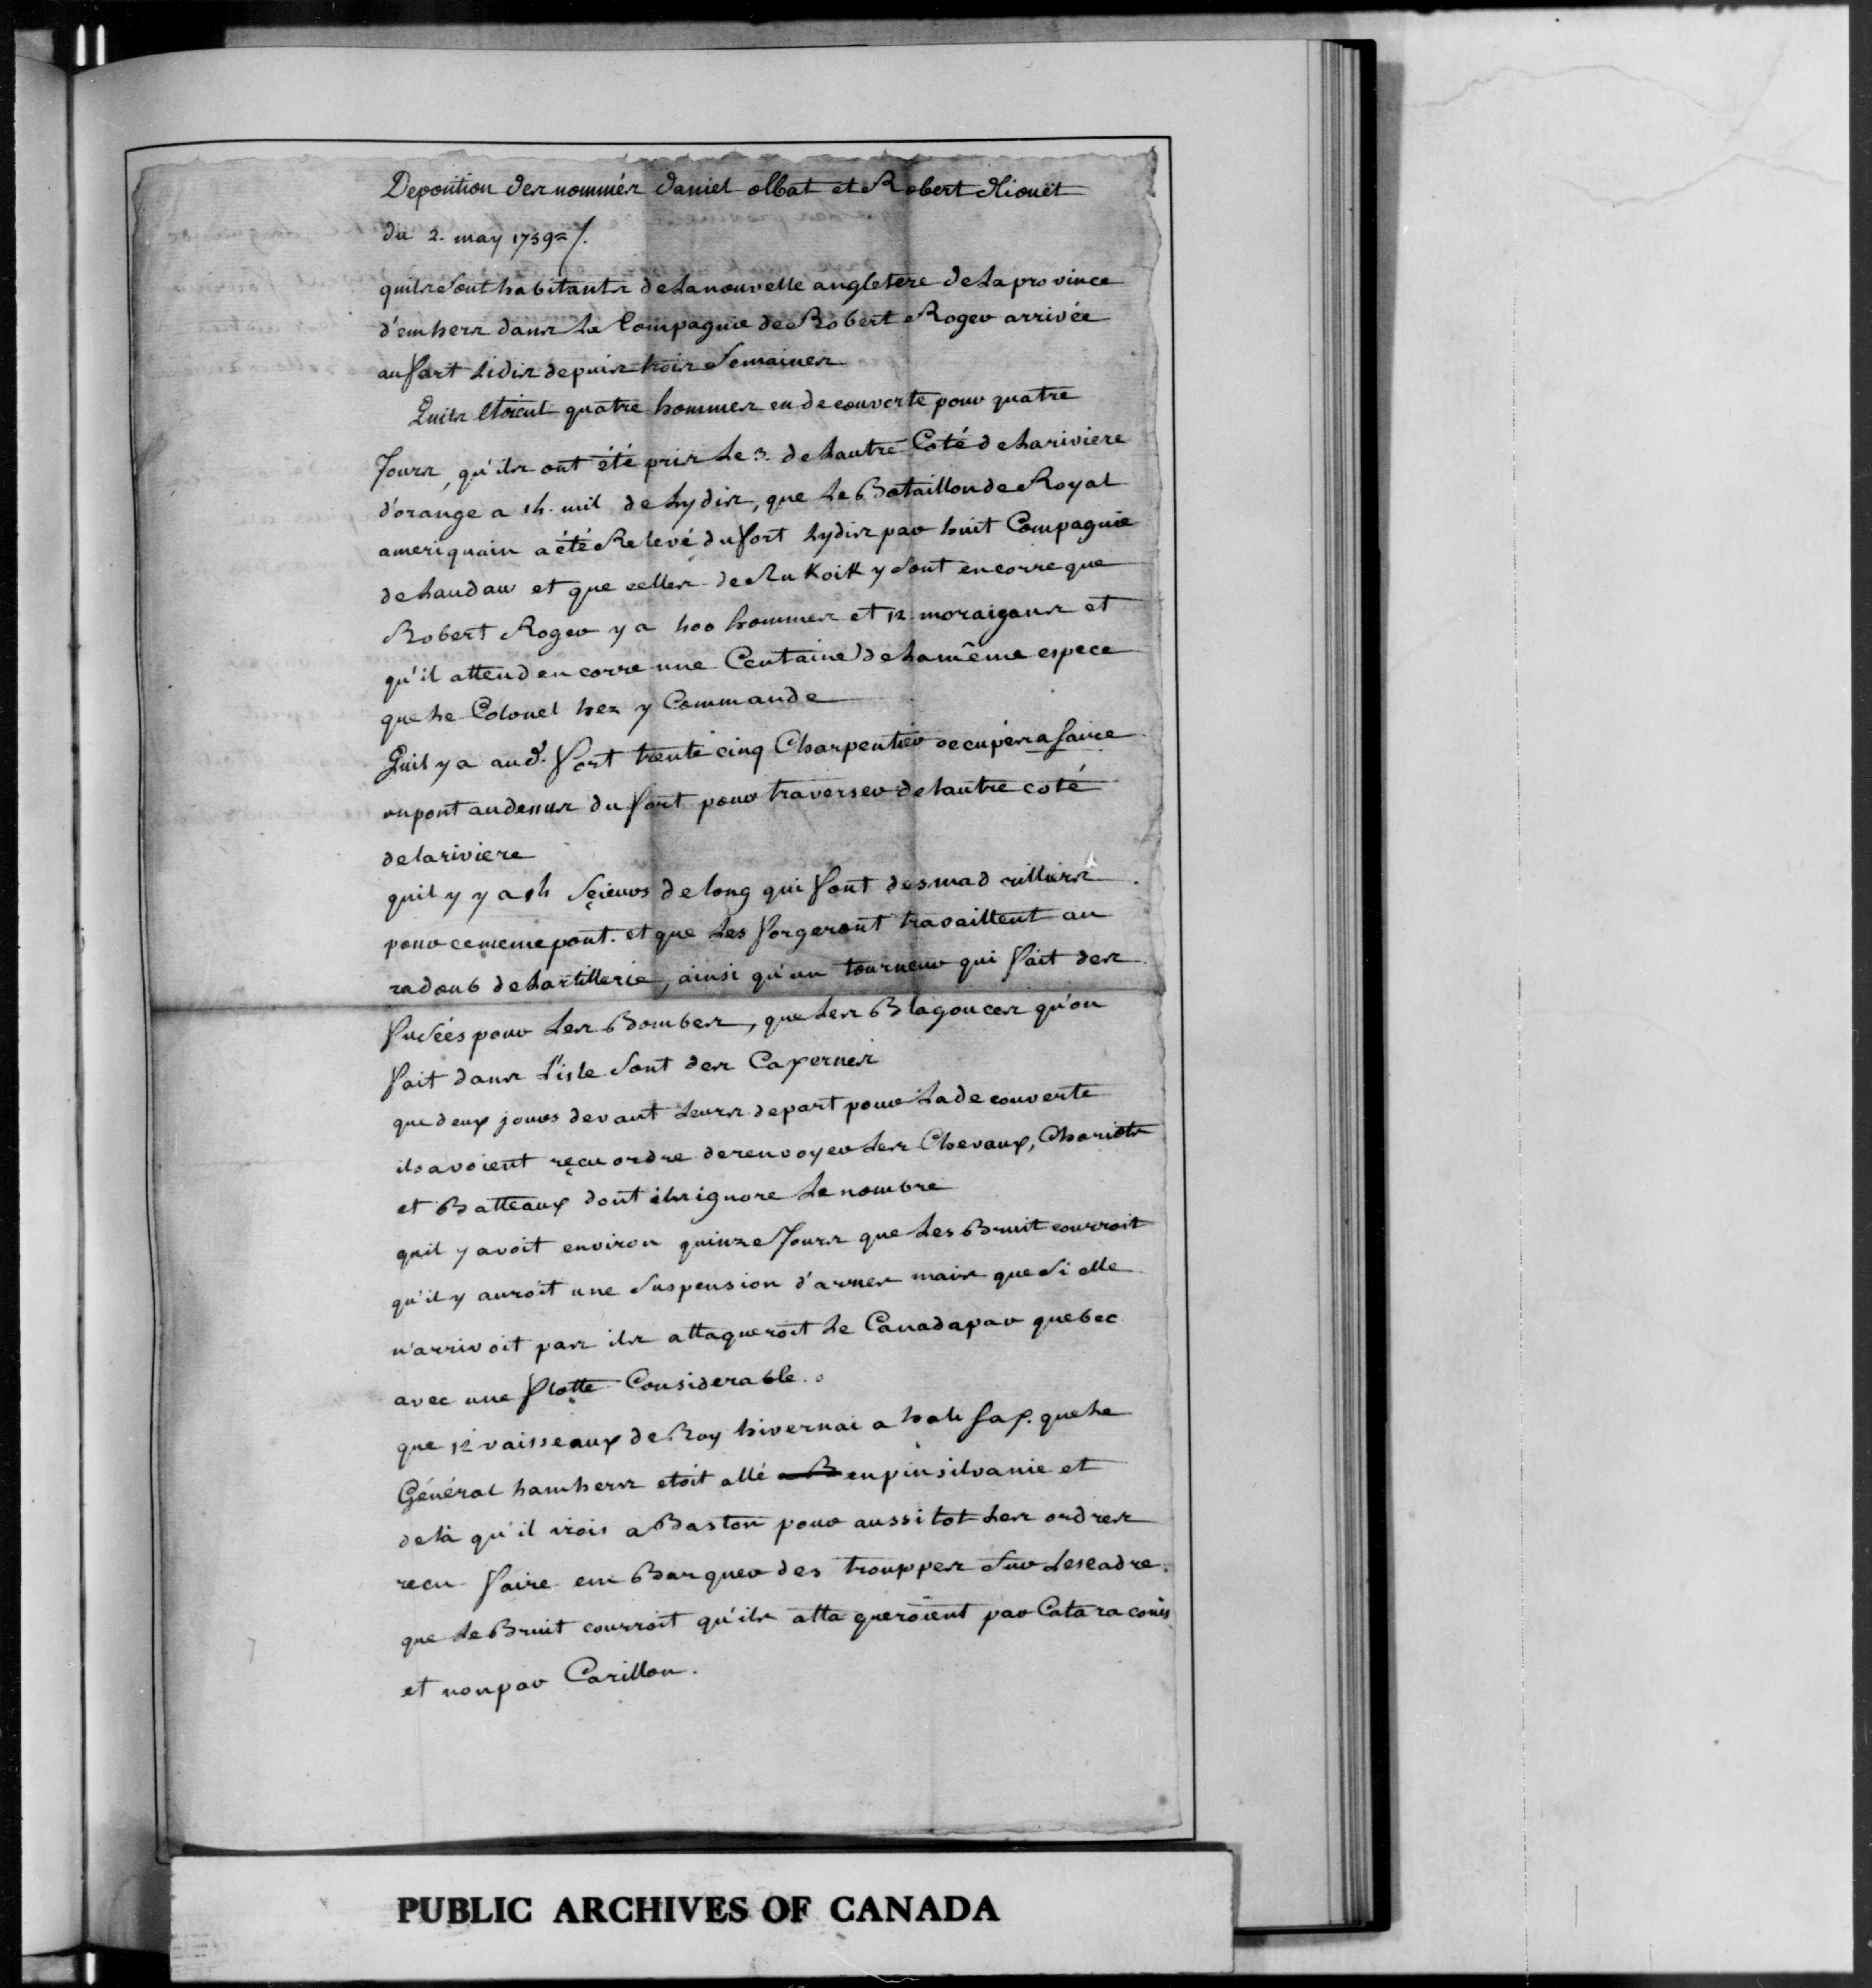 Deposition des nommés Daniel olbat et Robert Hiouët
du 2. may 1759 = /.
quils sont habitants de la nouvelle angletere de la province
d'emhers dans la Compagnie de Robert Roger arrivée
au fort Lidis depuis trois Semaines
Quils Etoient quatre hommes en decouverte pour quatre
Jours, qu'ils ont été pris le 3. de lautre Coté de la riviere
d'orange a 14. mil de Lydis, que le Bataillon de Royal
ameriquain a été Relevé du fort Lydis par huit Compagnie
de Landau et que celles de Nu Koitk y sont encorre que
Robert Roger y a 400 hommes et 12 moraigans et
qu'il attend encorre une Centaine de la même espece
que le Colonel hez y Commande
Quil y a aud. fort trente cinq Charpentier occupés a faire
un pont au dessus du fort pour traverser de lautre coté
de la riviere
quil y y a 14 sçieurs de long qui font des madrilliers
pour ce meme pont. et que les forgeront travaillent au
radoub de lartillerie, ainsi qu'un tourneur qui fait des
fusées pour les Bombes, que les Blagouces qu'on
fait dans l'isle sont des Caxernes
que deux jours devant leurs depart pour la decouverte
ils avoient reçu ordre de renvoyer les Chevaux, Chariots
et Batteaux dont ils ignore le nombre
quil y avoit environ quinze Jours que les Bruit courroit
qu'il y auroit une suspension d'armes mais que si elle
n'arrivoit pas ils attaqueroit le Canada par quebec
avec une flotte Considerable.
que 12 vaisseaux de Roy hivernai a halifax. que le
Général hamhers etoit allé a B en pinsilvanie et
delà qu'il irois a Baston pour aussitot les ordres
recu faire em Barquer des trouppes sur lescadre.
que le Bruit courroit qu'ils attaqueroient par Cataracouis
et non par Carillon.
PUBLIC ARCHIVES OF CANADA